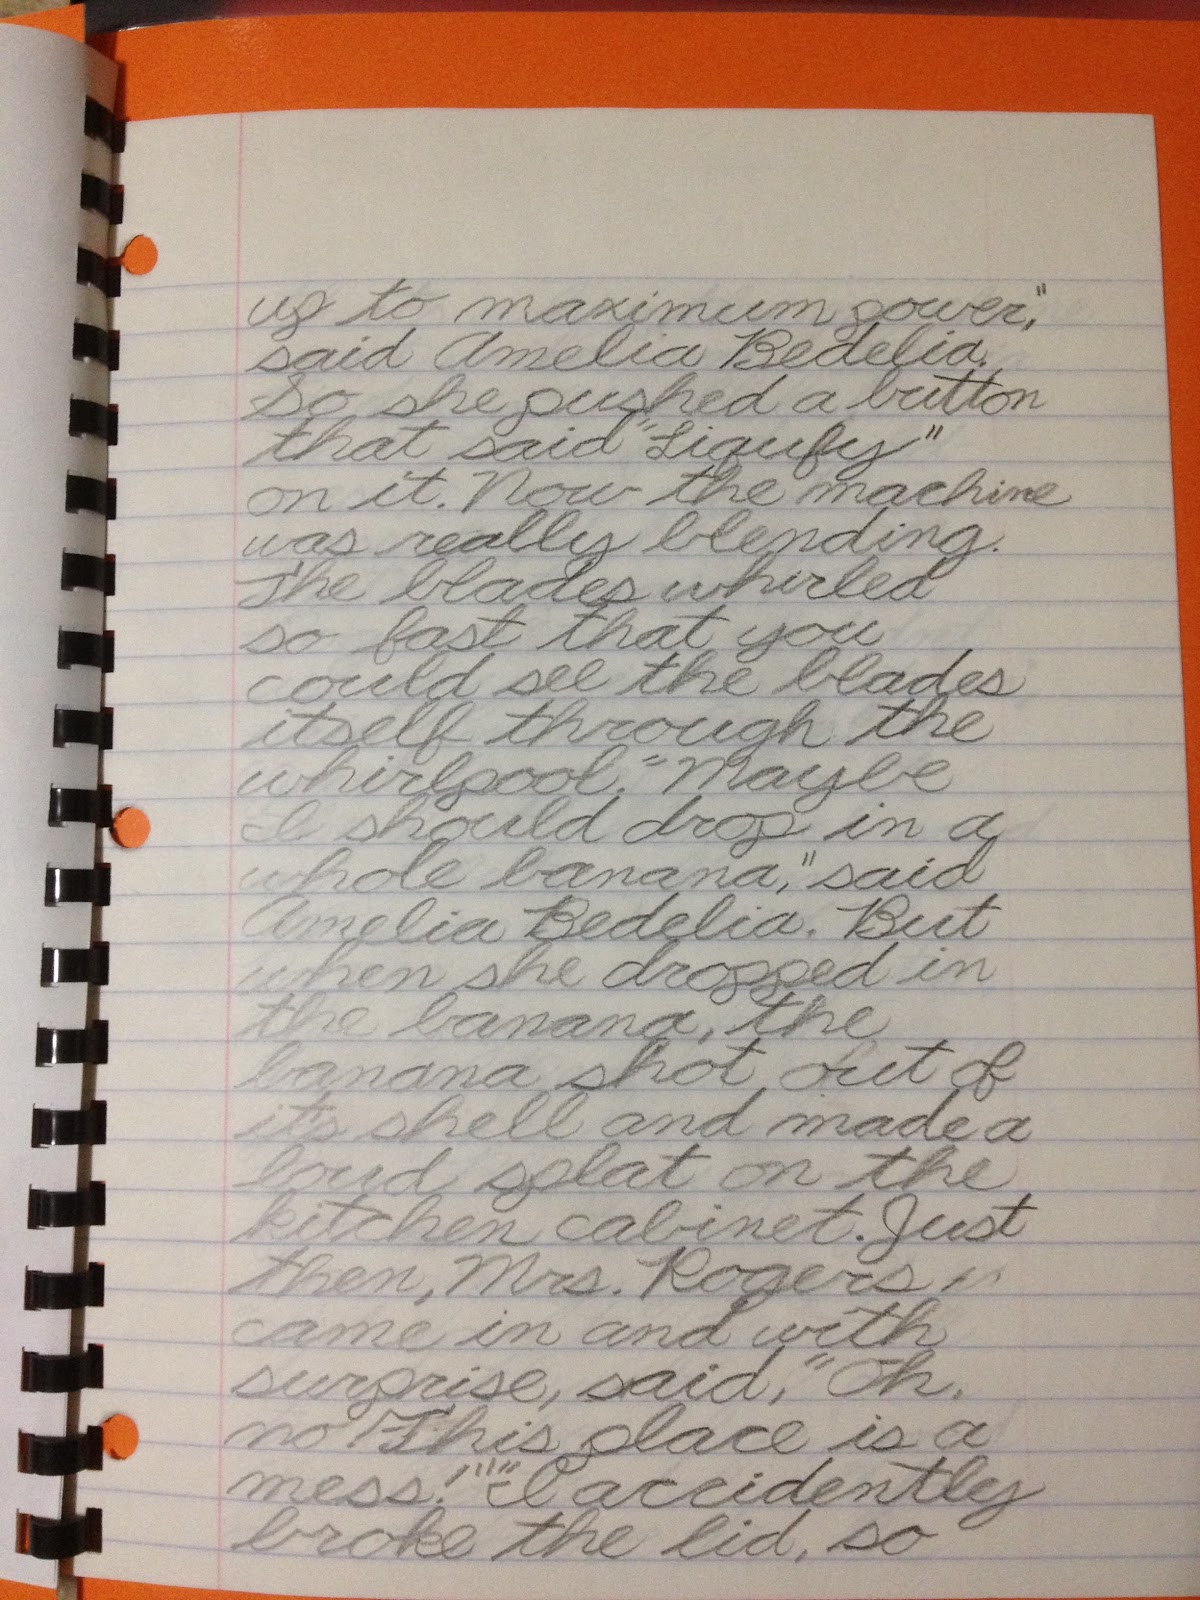 up to maximum power,"
said Amelia Bedelia.
So she pushed a button
that said "Liqufy"
on it. Now the machine
was really blending.
The blades whirled
so fast that you
could see the blades
itself through the
whirlpool. "Maybe
I should drop in a
whole banana," said
Amelia Bedelia. But
when she dropped in
the banana, the
banana shot out of
it's shell and made a
loud splat on the
kitchen cabinet. Just
then, Mrs. Rogers
came in and with
surprise, said, "Oh,
no! This place is a
mess!" "I accidently
broke the lid, so